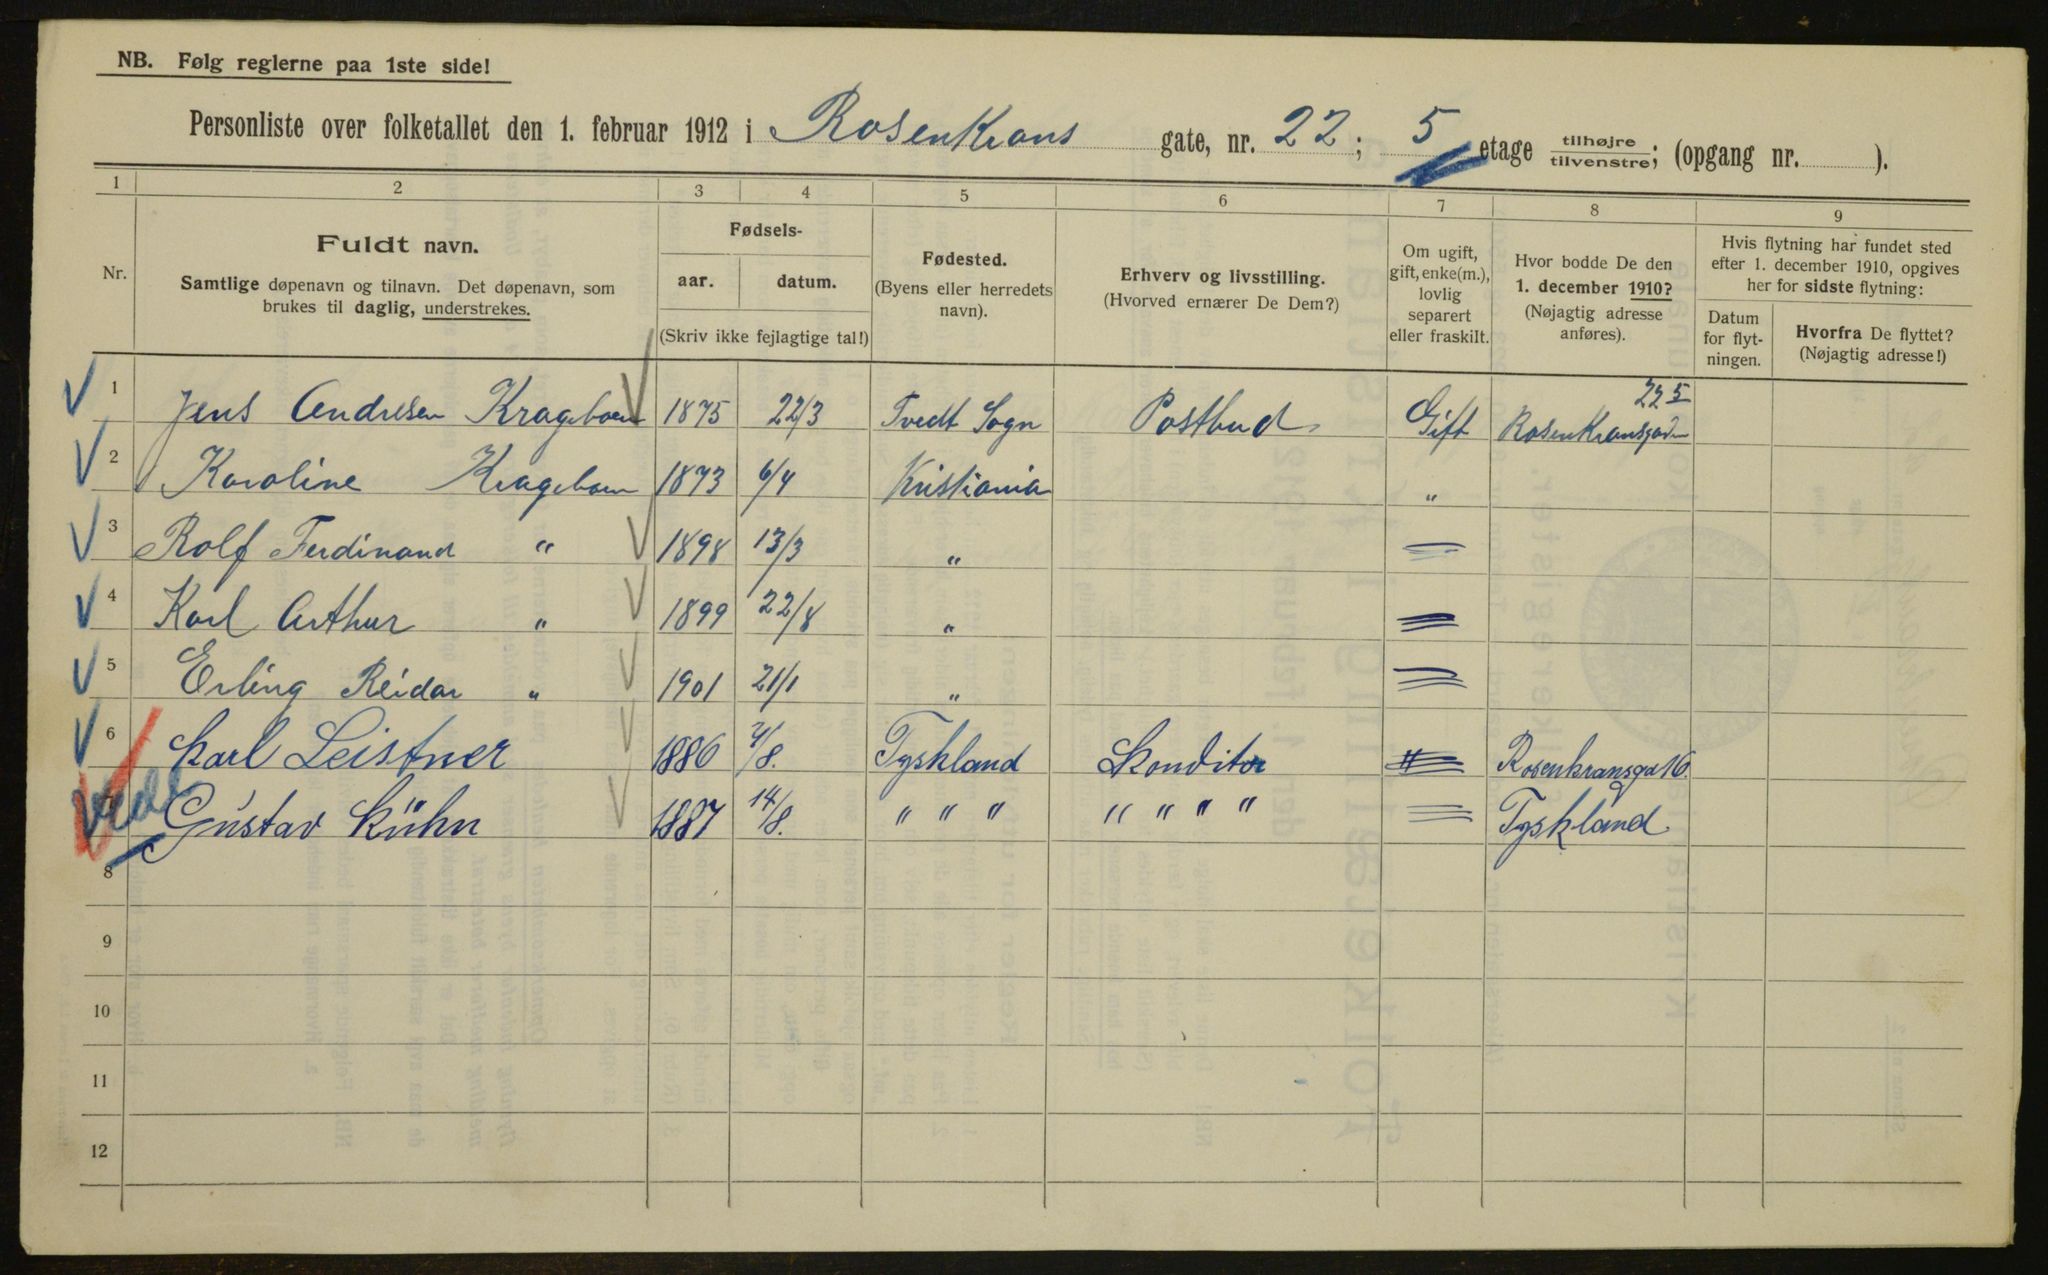 NB. Følg reglerne paa 1ste side!
Personliste over folketallet den 1. februar 1912 i RosenKrans gate, nr. 22; 5 etage tilhøjre/tilvenstre; (opgang nr. ).
1 2 3 4 5 6 7 8 9
Nr.
Fuldt navn.
Samtlige døpenavn og tilnavn. Det døpenavn, som
brukes til daglig, understrekes.
Fødsels-
aar. datum.
(Skriv ikke fejlagtige tal!)
Fødested.
(Byens eller herredets
navn).
Erhverv og livsstilling.
(Hvorved ernærer De Dem?)
Om ugift,
gift, enke(m.),
lovlig
separert
eller fraskilt.
Hvor bodde De den
1. december 1910?
(Nøjagtig adresse
anføres).
Hvis flytning har fundet sted
efter 1. december 1910, opgives
her for sidste flytning:
Datum
for flyt-
ningen.
Hvorfra De flyttet?
(Nøjagtig adresse!)
22 5
1 Jens Andresen Krageboen 1875 22/3 Tvedt Sogn Postbud Gift RosenKransgaden
2 Karoline Krageboen 1873 6/4 Kristiania "
3 Rolf Ferdinand " 1898 13/3 "
4 Karl Arthur " 1899 22/8 "
5 Erling Reidar " 1901 21/1 "
6 Karl Leistner 1886 /8. Tyskland Konditor Rosenkransga 16.
Gustav Kühn 1887 14/8. " " " " " " " Tyskland
8
9
10
11
12